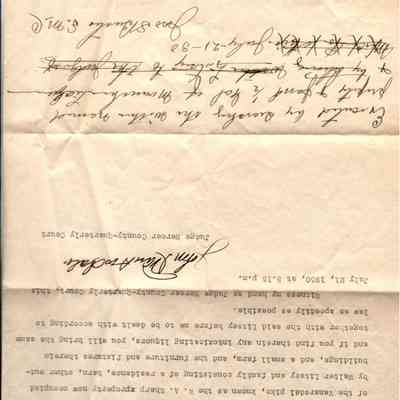 of the Vanarsdel pike, known as the R. A. Sharp aproperty now occupied
by Walker Litsey and family consisting of a residence, barn, other out-
buildings, and a small farm, and the furniture and fixtures therein
and if you find therein any intoxicating liquors, you will bring the same
together with the said Litsey before me to be dealt with according to
law as speedily as possible.
Witness my hand as Judge Mercer County-Quarterly Court; this
July 21, 1930, at 5.15 p.m.
John
Judge Mercer County-Quarterly Court
Executed by searching the within named
property & found ½ Gal of Moonshine
& by to the
July-21-30